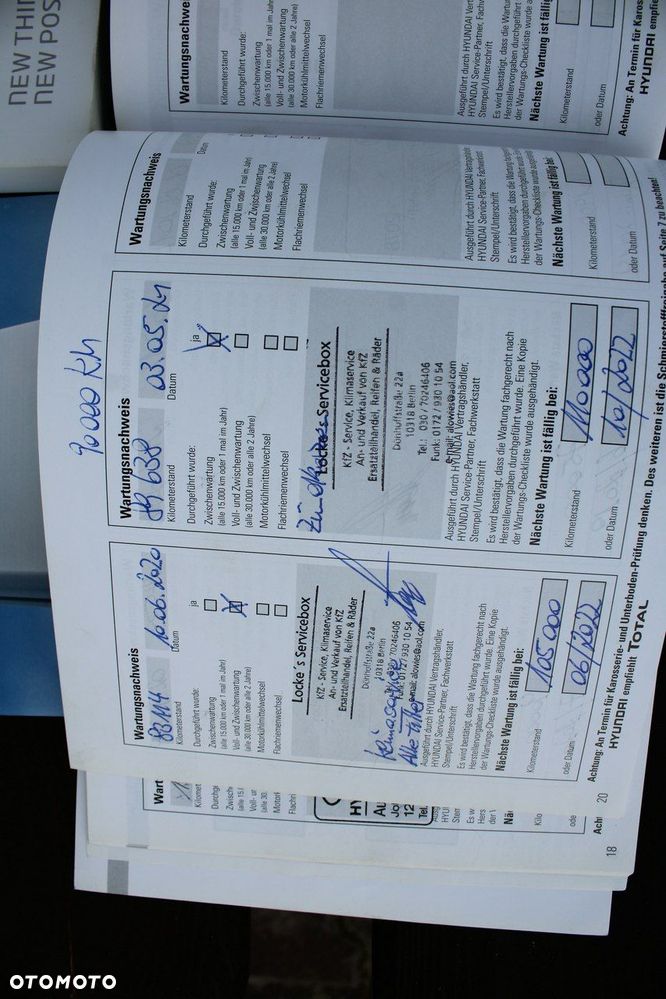 NEW THI
NEW POS
Wartungsnachweis
Kilometerstand
Durchgeführt wurde:
Zwischenwartung
(alle 15.000 km oder 1 mal im Jahr)
Voll- und Zwischenwartung
(alle 30.000 km oder alle 2 Jahre)
Motorkühlmittelwechsel
Flachriemenwechsel
Ausgeführt durch HYUNDAI
HYUNDAI Service-Partner,
Stempel/Unterschrift
Es wird bestätigt, dass die Wartung
Herstellervorgaben durchgeführt
der Wartungs-Checkliste wurde
Nächste Wartung ist fällig
Kilometerstand
oder Datum
Achtung: An Termin für Karosse
HYUNDAI empfiehlt
Wartungsnachweis
Kilometerstand
Datum
Durchgeführt wurde:
Zwischenwartung
(alle 15.000 km oder 1 mal im Jahr)
Voll- und Zwischenwartung
(alle 30.000 km oder alle 2 Jahre)
Motorkühlmittelwechsel
Flachriemenwechsel
Ausgeführt durch HYUNDAI Vertragshändler,
HYUNDAI Service-Partner, Fachwerkstatt
Stempel/Unterschrift
Es wird bestätigt, dass die Wartung
Herstellervorgaben durchgeführt wurde.
der Wartungs-Checkliste wurde
Nächste Wartung ist fällig bei:
Kilometerstand
oder Datum
90000 KM
Wartungsnachweis
89638 03.05.21
Kilometerstand Datum
Durchgeführt wurde: ja
Zwischenwartung
(alle 15.000 km oder 1 mal im Jahr)
Voll- und Zwischenwartung
(alle 30.000 km oder alle 2 Jahre)
Motorkühlmittelwechsel
Flachriemenwechsel
Locke's Servicebox
KfZ - Service, Klimaservice
An- und Verkauf von KfZ
Ersatzteilhandel, Reifen & Räder
Dörirhoffstraße 22a
10318 Berlin
Tel.: 030 / 70246406
Funk: 0172 / 930 10 54
e-mail: alowies@aol.com
Ausgeführt durch HYUNDAI Vertragshändler,
HYUNDAI Service-Partner, Fachwerkstatt
Stempel/Unterschrift
Es wird bestätigt, dass die Wartung fachgerecht nach
Herstellervorgaben durchgeführt wurde. Eine Kopie
der Wartungs-Checkliste wurde ausgehändigt.
Nächste Wartung ist fällig bei:
Kilometerstand 110000
oder Datum 10/2022
Wartungsnachweis
83114 10.06.2020
Kilometerstand Datum
Durchgeführt wurde: ja
Zwischenwartung
(alle 15.000 km oder 1 mal im Jahr)
Voll- und Zwischenwartung
(alle 30.000 km oder alle 2 Jahre)
Motorkühlmittelwechsel
Flachriemenwechsel
Locke's Servicebox
KfZ - Service, Klimaservice
An- und Verkauf von KfZ
Ersatzteilhandel, Reifen & Räder
22a
10318 Berlin
70246406
930 10 54
e-mail: alowies@aol.com
Klimaservice
Alle Filter
Ausgeführt durch HYUNDAI Vertragshändler,
HYUNDAI Service-Partner, Fachwerkstatt
Stempel/Unterschrift
Es wird bestätigt, dass die Wartung fachgerecht nach
Herstellervorgaben durchgeführt wurde. Eine Kopie
der Wartungs-Checkliste wurde ausgehändigt.
Nächste Wartung ist fällig bei:
Kilometerstand 105000
oder Datum 06/2022
Achtung: An Termin für Karosserie- und Unterboden-Prüfung denken. Des weiteren ist die Schmierstofffreigabe auf Seite 7 zu beachten!
HYUNDAI empfiehlt TOTAL
20
18
OTOMOTO